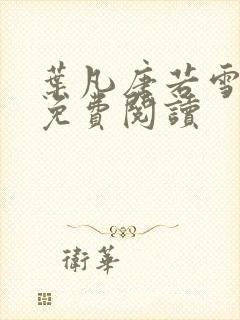 葉凡唐若雪
免費閱讀
衛華